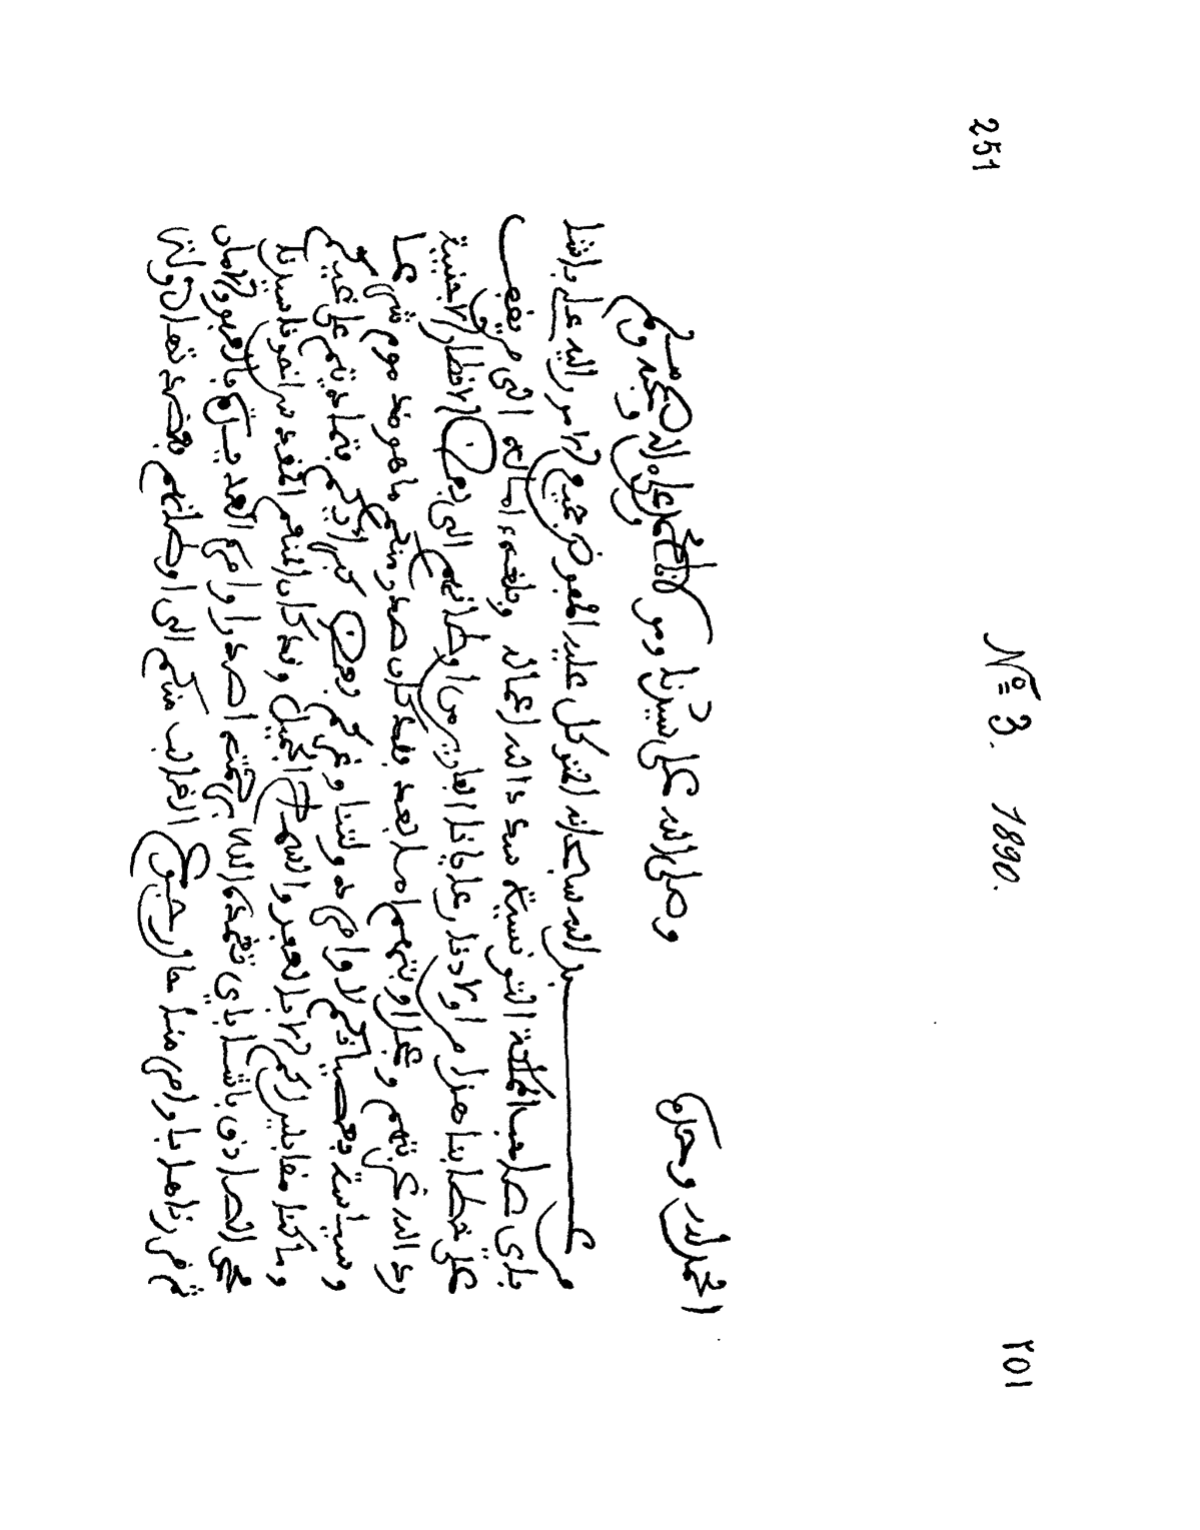 251
№ 3. 1890.
٢٥١
الحمد لله وحده وصلى الله على سيدنا ومولانا محمد وعلى آله وصحبه وسلم
من عبد الله سبحانه المتوكل عليه المفوض جميع الامور اليه علي باشا
باي صاحب المملكة التونسية سدد الله اعماله وبلغه اماله الى من يقف
على كتابنا هذا من اولادنا رعايانا الفارين من اوطانهم الى بعض الاقطار الاجنبية
رد الله غربتهم وعجل اوبتهم اما بعد فقد كان صدر منكم ما هو مذموم شرعا
وسياسة بعصيانكم لاوامر دولتنا وغركم بعض كبرائكم فتماديتم على غيكم
وما كنا مقابلين لكم الا بالعفو والسماح الجميل وقد كان المنعم المقدس اخونا سيدنا
محمد الصادق باشا باي تغمده الله برحمته اصدر اوامره العديدة بالعفو والامان
ثم عززناها باوامر منا منكم الى اوطانهم